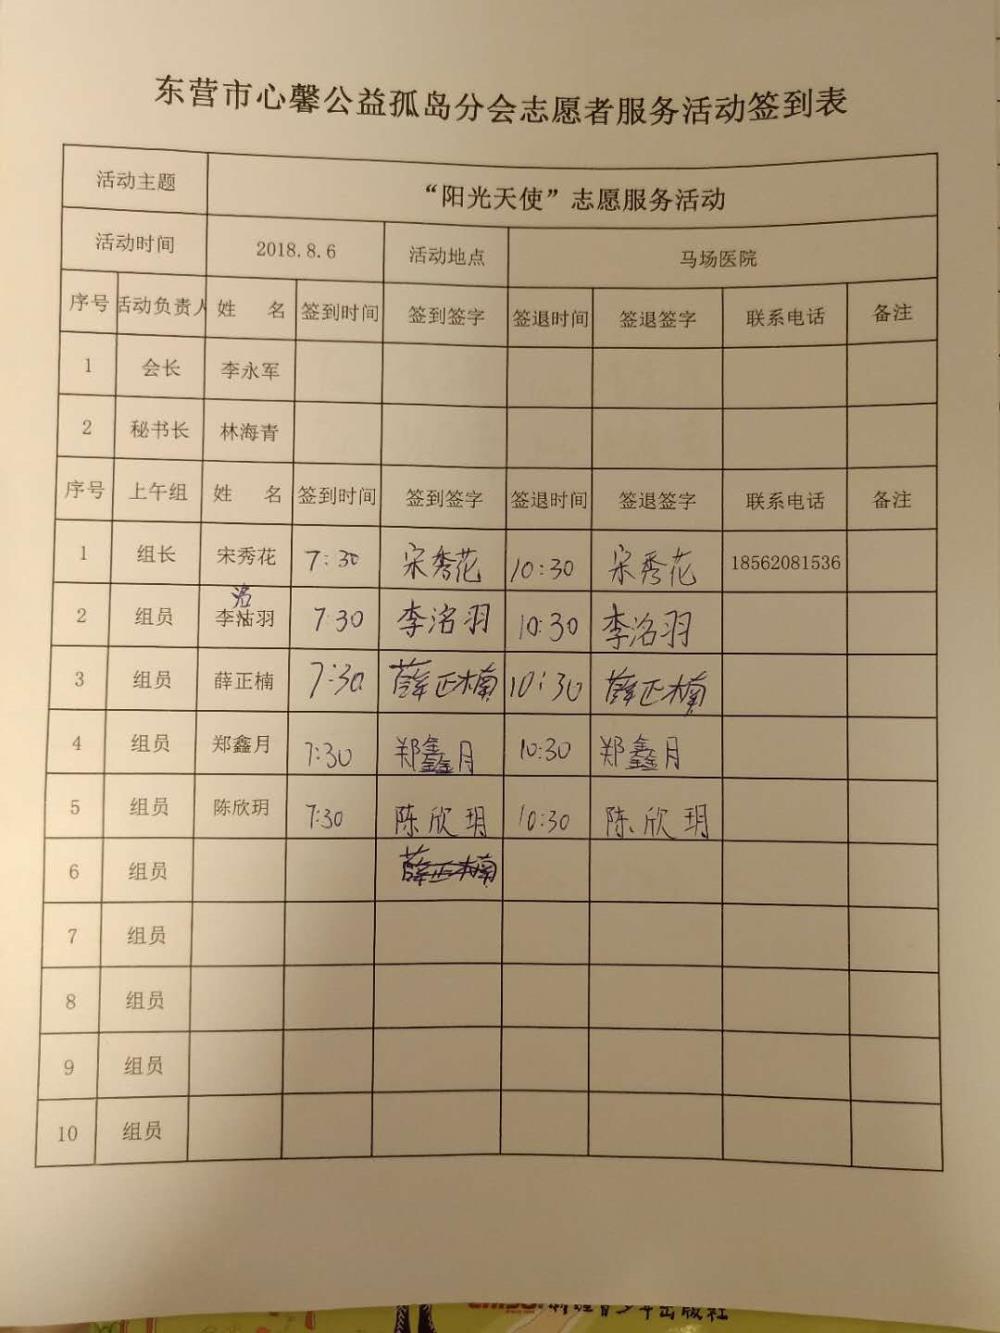 东营市心馨公益孤岛分会志愿者服务活动签到表
活动主题 “阳光天使”志愿服务活动
活动时间 2018.8.6 活动地点 马场医院
序号 活动负责人 姓 名 签到时间 签到签字 签退时间 签退签字 联系电话 备注
1 会长 李永军
2 秘书长 林海青
序号 上午组 姓 名 签到时间 签到签字 签退时间 签退签字 联系电话 备注
1 组长 宋秀花 7:30 宋秀花 10:30 宋秀花 18562081536
洺
2 组员 李沽羽 7:30 李洺羽 10:30 李洺羽
3 组员 薛正楠 7:30 薛正楠 10:30 薛正楠
4 组员 郑鑫月 7:30 郑鑫月 10:30 郑鑫月
5 组员 陈欣玥 7:30 陈欣玥 10:30 陈欣玥
6 组员 薛正楠
7 组员
8 组员
9 组员
10 组员
青少年出版社